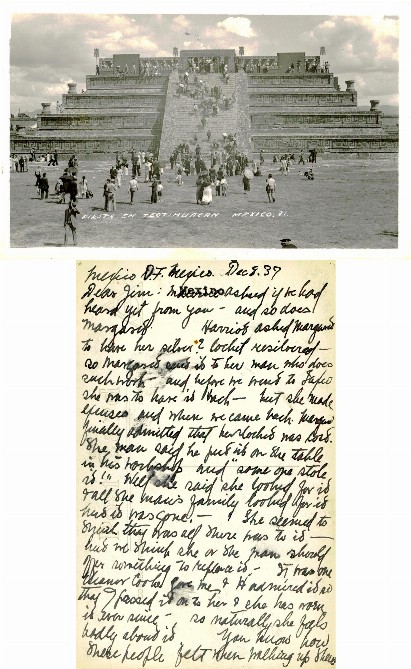 FIESTA EN TEOTIHUACAN MEXICO. 21.
Mexico D.F. Mexico. Dec 8. 37
Dear Jim: Mexico asked if we had
heard yet from you - and so does
Margaret Harriet asked Margaret
to have her silver locket resilvered -
so Margaret sent it to her man who does
such work - and before we went to
she was to have it back - but she made
excuses and when we came back. Margaret
finally admitted that her locket was lost.
The man said he put it on the table
in his workshop and "some one stole
it!" Well she said she looked for it
& all the man's family looked for it
but it was gone! - She seemed to
think that was all there was to it -
but we think she or the man should
offer something to replace it - It was one
Eleanor gave me & H admired it so
that I passed it on to her & she has worn
it ever since - so naturally she feels
badly about it You know how
these people felt when walking up